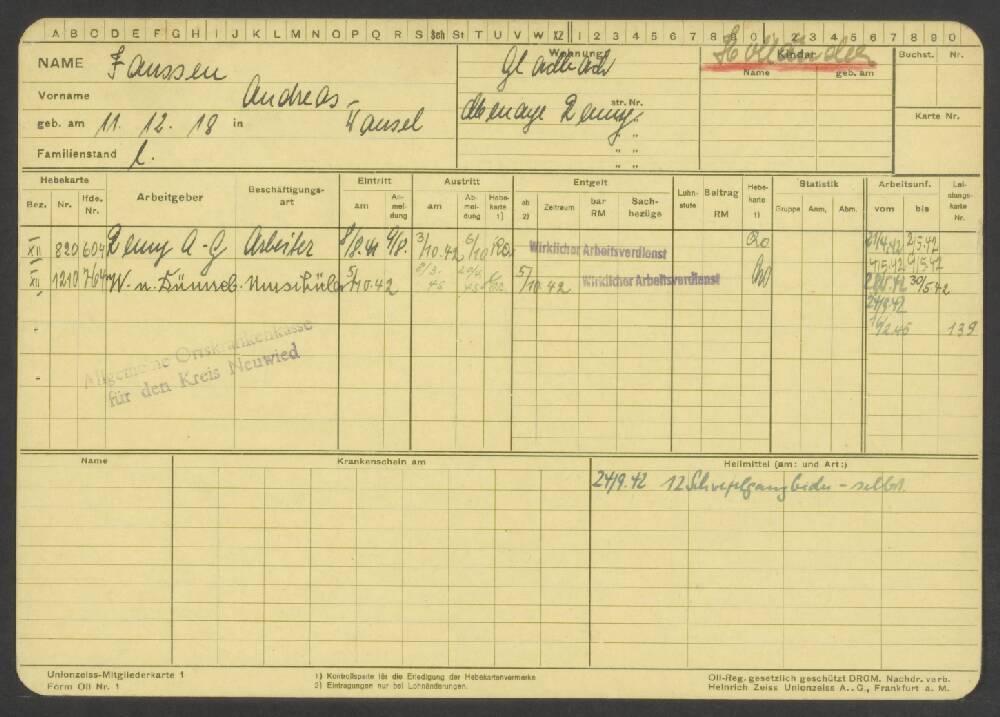 A B C D E F G H I J K L M N O P Q R S Sch St T U V W XZ 1 2 3 4 5 6 7 8 9 0 1 2 3 4 5 6 7 8 9 0
NAME Janssen
Vorname Andreas
geb. am 11. 12. 18 in
Familienstand l.
Wohnung
Gladbach
str. Nr.
" "
" "
Holländer
Kinder
Name geb. am
Buchst. Nr.
Karte Nr.
Hebekarte Arbeitgeber Beschäftigungsart Eintritt Austritt Entgelt Lohnstufe Beitrag RM Hebekarte 1) Statistik Arbeitsunf. Leistungskarte Nr.
Bez. Nr. lfde. Nr. am Anmeldung am Abmeldung Hebekarte 1) ab 2) Zeitraum bar RM Sachbezüge Gruppe Anm. Abm. vom bis
XII 820 604 Remy A-G Arbeiter 1/8.41 3/10.42 6/10 Wirklicher Arbeitsverdienst 21/4.42 2/5.42
4/5.42 9/5.42
XII 1210 W. u. Umschüler 5/10.42 5/10.42 Wirklicher Arbeitsverdienst 30/5.42
24/8.42
139
Allgemeine Ortskrankenkasse
für den Kreis Neuwied
Name Krankenschein am Heilmittel (am: und Art:)
24/9.42 12 - selbst.
Unionzeiss-Mitgliederkarte 1
Form Oli Nr. 1
1) Kontrollspalte für die Erledigung der Hebekartenvermerke
2) Eintragungen nur bei Lohnänderungen.
Oli-Reg. gesetzlich geschützt DRGM. Nachdr. verb.
Heinrich Zeiss Unionzeiss A.-G., Frankfurt a. M.